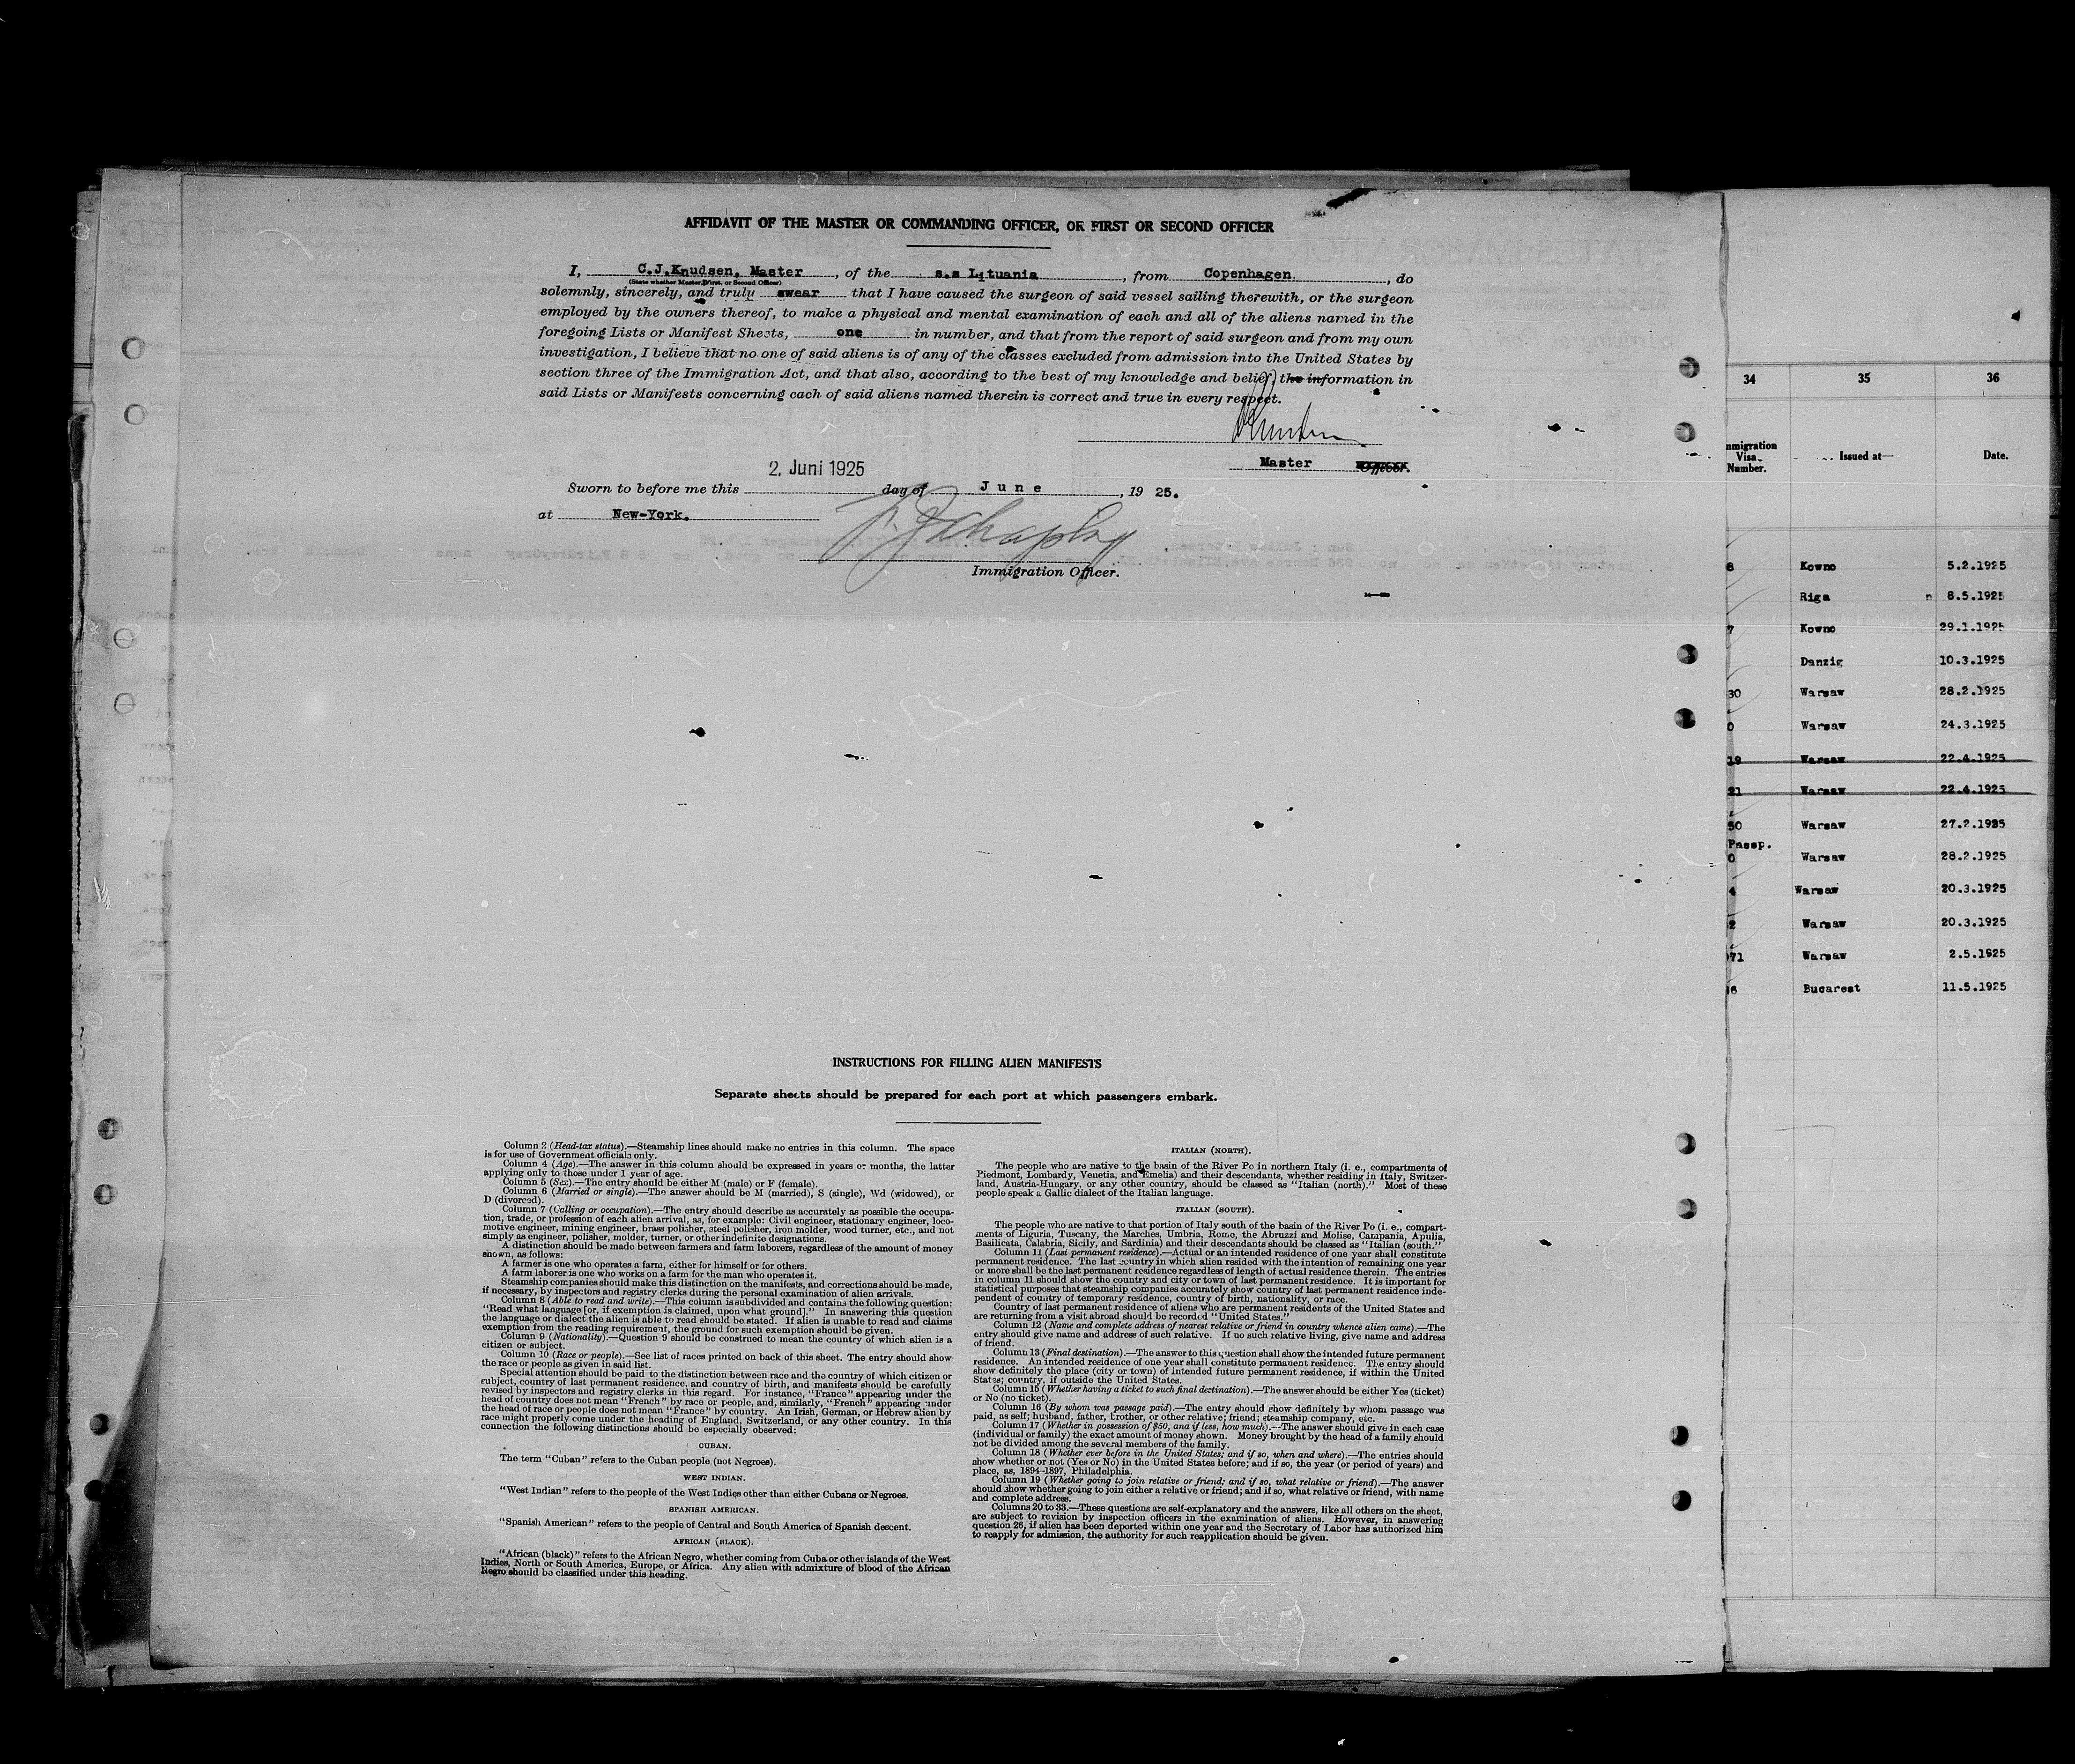 AFFIDAVIT OF THE MASTER OR COMMANDING OFFICER, OR FIRST OR SECOND OFFICER
I, C.J.Knudsen, Master, of the s.s Lituania, from Copenhagen, do
(State whether Master, First, or Second Officer)
solemnly, sincerely, and truly swear that I have caused the surgeon of said vessel sailing therewith, or the surgeon
employed by the owners thereof, to make a physical and mental examination of each and all of the aliens named in the
foregoing Lists or Manifest Sheets, one in number, and that from the report of said surgeon and from my own
investigation, I believe that no one of said aliens is of any of the classes excluded from admission into the United States by
section three of the Immigration Act, and that also, according to the best of my knowledge and belief, the information in
said Lists or Manifests concerning each of said aliens named therein is correct and true in every respect.
Master Officer.
2. Juni 1925
Sworn to before me this day of June, 19 25.
at New-York.
Immigration Officer.
INSTRUCTIONS FOR FILLING ALIEN MANIFESTS
Separate sheets should be prepared for each port at which passengers embark.
Column 2 (Head-tax status).—Steamship lines should make no entries in this column. The space
is for use of Government officials only.
Column 4 (Age).—The answer in this column should be expressed in years or months, the latter
applying only to those under 1 year of age.
Column 5 (Sex).—The entry should be either M (male) or F (female).
Column 6 (Married or single).—The answer should be M (married), S (single), Wd (widowed), or
D (divorced).
Column 7 (Calling or occupation).—The entry should describe as accurately as possible the occupa-
tion, trade, or profession of each alien arrival, as, for example: Civil engineer, stationary engineer, loco-
motive engineer, mining engineer, brass polisher, steel polisher, iron molder, wood turner, etc., and not
simply as engineer, polisher, molder, turner, or other indefinite designations.
A distinction should be made between farmers and farm laborers, regardless of the amount of money
shown, as follows:
A farmer is one who operates a farm, either for himself or for others.
A farm laborer is one who works on a farm for the man who operates it.
Steamship companies should make this distinction on the manifests, and corrections should be made,
if necessary, by inspectors and registry clerks during the personal examination of alien arrivals.
Column 8 (Able to read and write).—This column is subdivided and contains the following question:
"Read what language [or, if exemption is claimed, upon what ground]." In answering this question
the language or dialect the alien is able to read should be stated. If alien is unable to read and claims
exemption from the reading requirement, the ground for such exemption should be given.
Column 9 (Nationality).—Question 9 should be construed to mean the country of which alien is a
citizen or subject.
Column 10 (Race or people).—See list of races printed on back of this sheet. The entry should show
the race or people as given in said list.
Special attention should be paid to the distinction between race and the country of which citizen or
subject, country of last permanent residence, and country of birth, and manifests should be carefully
revised by inspectors and registry clerks in this regard. For instance, "France" appearing under the
head of country does not mean "French" by race or people, and, similarly, "French" appearing under
the head of race or people does not mean "France" by country. An Irish, German, or Hebrew alien by
race might properly come under the heading of England, Switzerland, or any other country. In this
connection the following distinctions should be especially observed:
CUBAN.
The term "Cuban" refers to the Cuban people (not Negroes).
WEST INDIAN.
"West Indian" refers to the people of the West Indies other than either Cubans or Negroes.
SPANISH AMERICAN.
"Spanish American" refers to the people of Central and South America of Spanish descent.
AFRICAN (BLACK).
"African (black)" refers to the African Negro, whether coming from Cuba or other islands of the West
Indies, North or South America, Europe, or Africa. Any alien with admixture of blood of the African
Negro should be classified under this heading.
ITALIAN (NORTH).
The people who are native to the basin of the River Po in northern Italy (i. e., compartments of
Piedmont, Lombardy, Venetia, and Emelia) and their descendants, whether residing in Italy, Switzer-
land, Austria-Hungary, or any other country, should be classed as "Italian (north)." Most of these
people speak a Gallic dialect of the Italian language.
ITALIAN (SOUTH).
The people who are native to that portion of Italy south of the basin of the River Po (i. e., compart-
ments of Liguria, Tuscany, the Marches, Umbria, Rome, the Abruzzi and Molise, Campania, Apulia,
Basilicata, Calabria, Sicily, and Sardinia) and their descendants should be classed as "Italian (south."
Column 11 (Last permanent residence).—Actual or an intended residence of one year shall constitute
permanent residence. The last country in which alien resided with the intention of remaining one year
or more shall be the last permanent residence regardless of length of actual residence therein. The entries
in column 11 should show the country and city or town of last permanent residence. It is important for
statistical purposes that steamship companies accurately show country of last permanent residence inde-
pendent of country of temporary residence, country of birth, nationality, or race.
Country of last permanent residence of aliens who are permanent residents of the United States and
are returning from a visit abroad should be recorded "United States."
Column 12 (Name and complete address of nearest relative or friend in country whence alien came).—The
entry should give name and address of such relative. If no such relative living, give name and address
of friend.
Column 13 (Final destination).—The answer to this question shall show the intended future permanent
residence. An intended residence of one year shall constitute permanent residence. The entry should
show definitely the place (city or town) of intended future permanent residence, if within the United
States; country, if outside the United States.
Column 15 (Whether having a ticket to such final destination).—The answer should be either Yes (ticket)
or No (no ticket).
Column 16 (By whom was passage paid).—The entry should show definitely by whom passage was
paid, as self; husband, father, brother, or other relative; friend; steamship company, etc.
Column 17 (Whether in possession of $50, and if less, how much).—The answer should give in each case
(individual or family) the exact amount of money shown. Money brought by the head of a family should
not be divided among the several members of the family.
Column 18 (Whether ever before in the United States; and if so, when and where).—The entries should
show whether or not (Yes or No) in the United States before; and if so, the year (or period of years) and
place, as, 1894–1897, Philadelphia.
Column 19 (Whether going to join relative or friend; and if so, what relative or friend).—The answer
should show whether going to join either a relative or friend; and if so, what relative or friend, with name
and complete address.
Columns 20 to 33.—These questions are self-explanatory and the answers, like all others on the sheet,
are subject to revision by inspection officers in the examination of aliens. However, in answering
question 26, if alien has been deported within one year and the Secretary of Labor has authorized him
to reapply for admission, the authority for such reapplication should be given.
34 35 36
mmigration
Visa
Number. Issued at— Date.
8 Kowno 5.2.1925
Riga 8.5.1925
7 Kowno 29.1.1925
Danzig 10.3.1925
30 Warsaw 28.2.1925
0 Warsaw 24.3.1925
19 Warsaw 22.4.1925
21 Warsaw 22.4.1925
50 Warsaw 27.2.1925
Passp.
0 Warsaw 28.2.1925
4 Warsaw 20.3.1925
2 Warsaw 20.3.1925
71 Warsaw 2.5.1925
6 Bucarest 11.5.1925